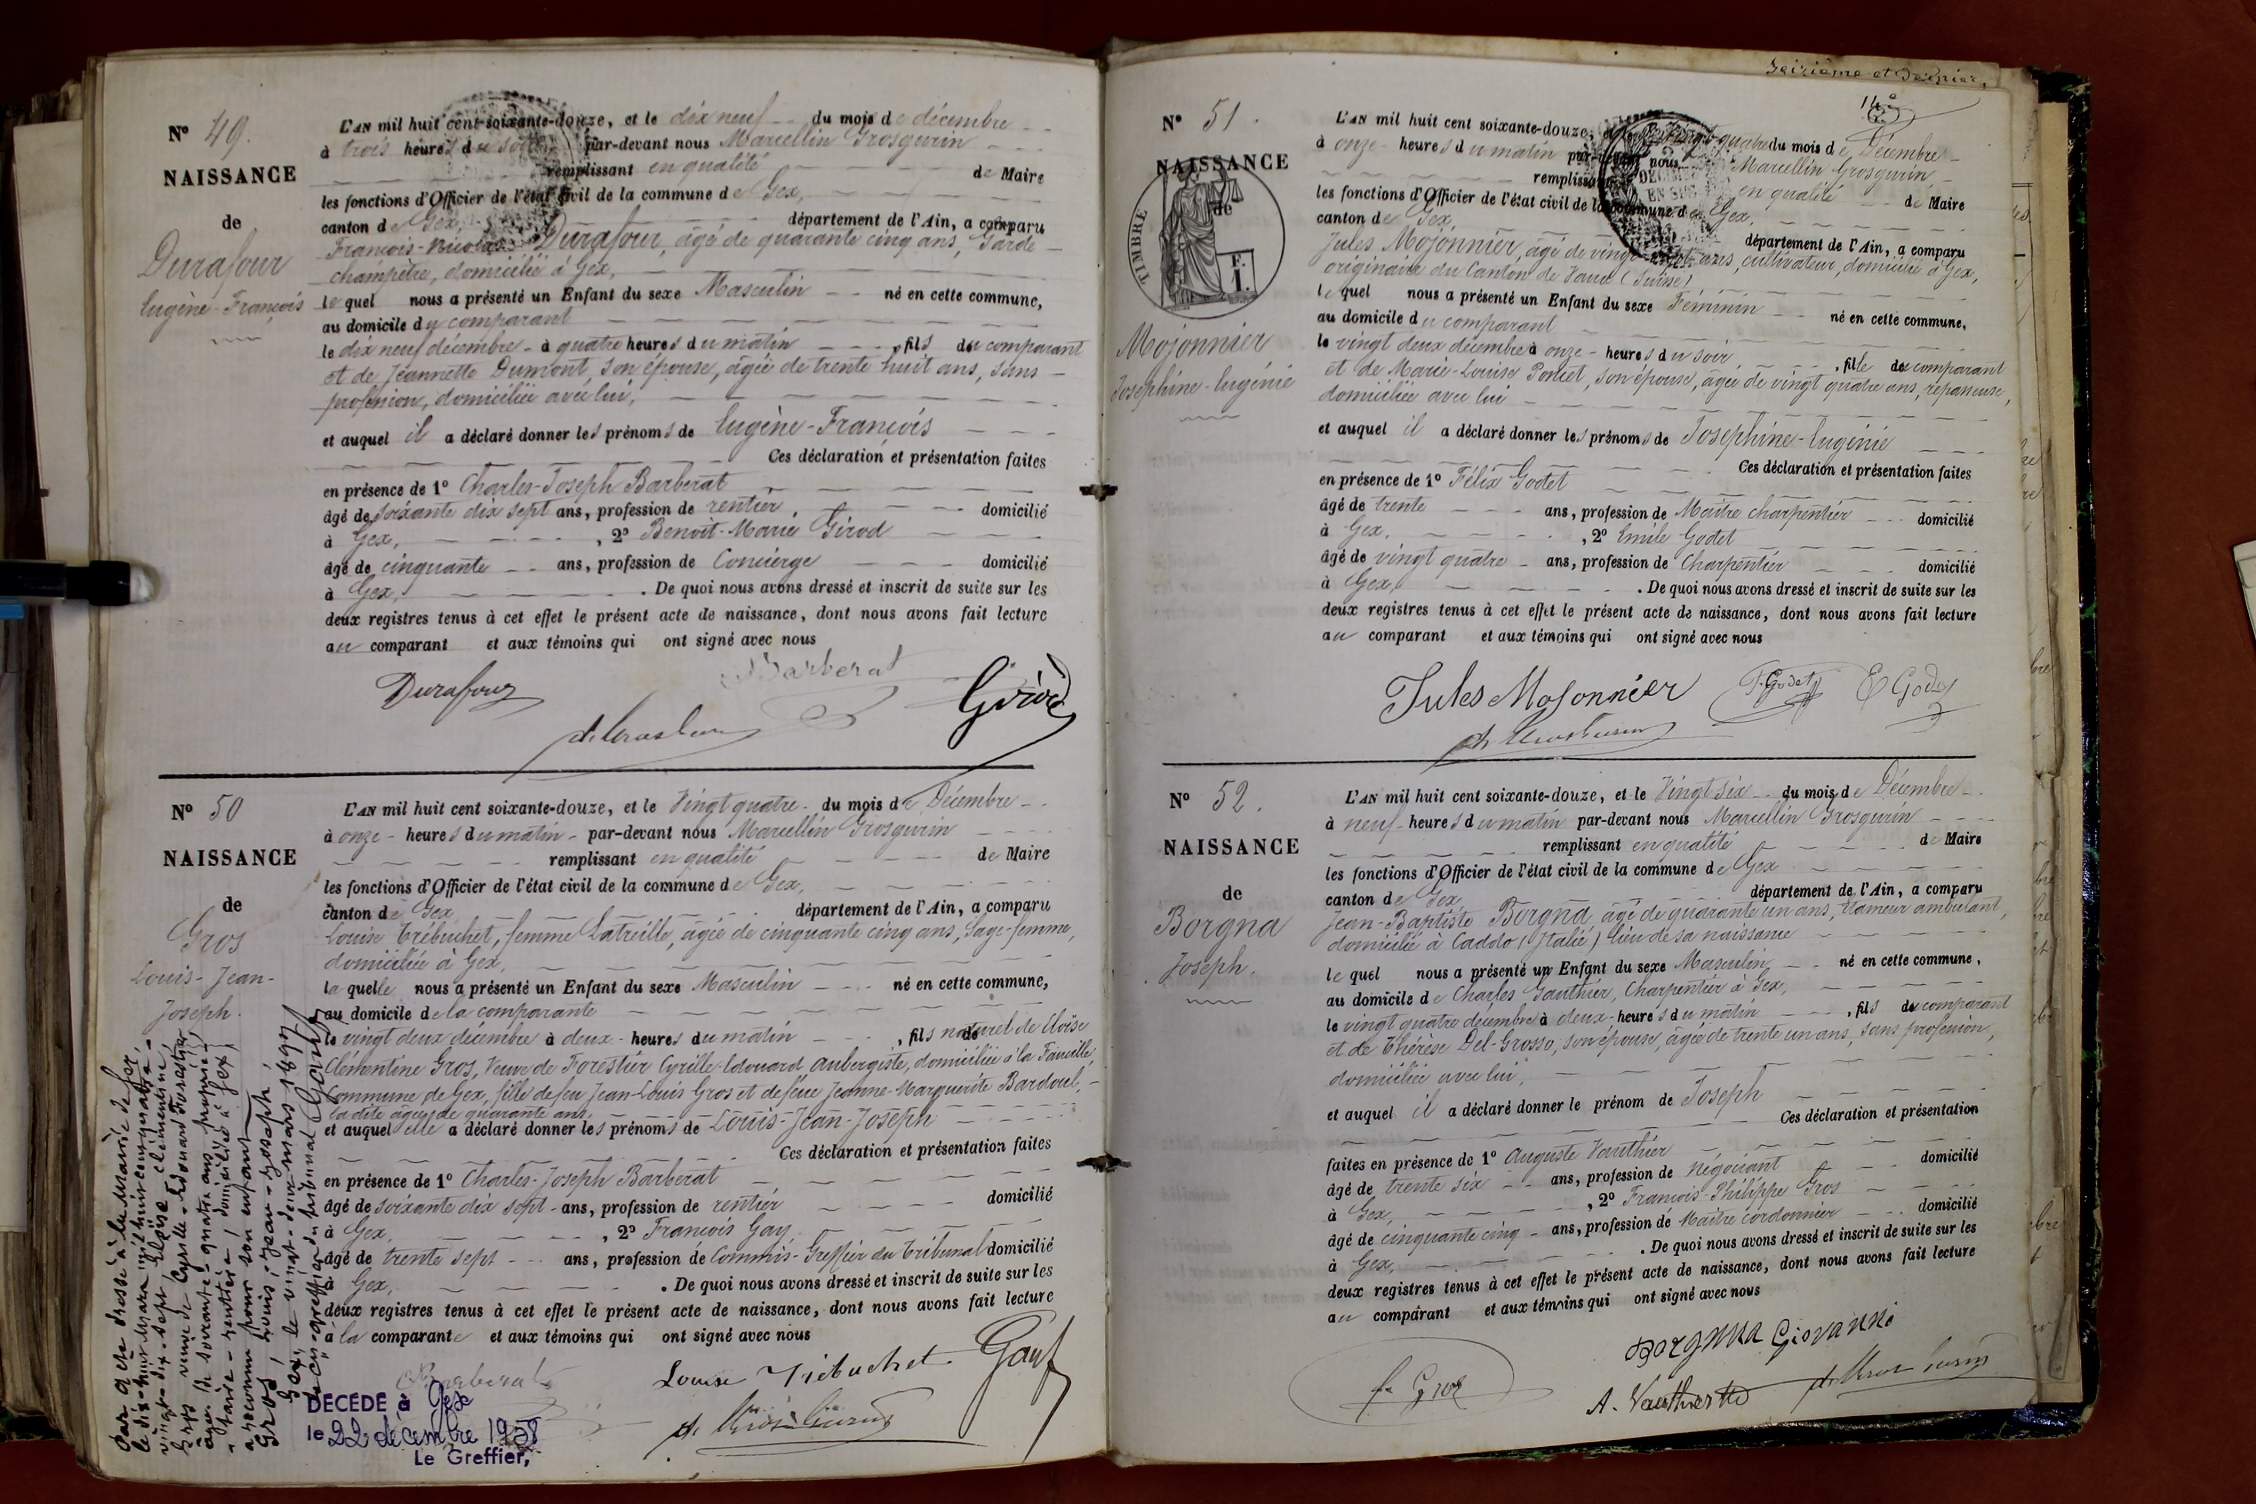 N° 49.
NAISSANCE
de
Durafour
Eugène-François
L'AN mil huit cent soixante-douze, et le dix neuf du mois de décembre
à trois heures du soir par-devant nous Marcellin Grosgurin
remplissant en qualité de Maire
les fonctions d'Officier de l'état civil de la commune de Gex,
canton de Gex, département de l'Ain, a comparu
François-Nicolas Durafour, âgé de quarante cinq ans, Garde
champêtre, domicilié à Gex,
lequel nous a présenté un Enfant du sexe Masculin né en cette commune,
au domicile du comparant
le dix neuf décembre à quatre heures du matin, fils du comparant
et de Jeannette Dumont, son épouse, âgée de trente huit ans, sans
profession, domiciliée avec lui,
et auquel il a déclaré donner les prénoms de Eugène-François
Ces déclaration et présentation faites
en présence de 1° Charles-Joseph Barberat
âgé de soixante dix sept ans, profession de rentier, domicilié
à Gex, , 2° Benoit-Marie Girod
âgé de cinquante ans, profession de Concierge domicilié
à Gex, . De quoi nous avons dressé et inscrit de suite sur les
deux registres tenus à cet effet le présent acte de naissance, dont nous avons fait lecture
au comparant et aux témoins qui ont signé avec nous
Barberat
Durafour
Girod
N° 50
NAISSANCE
de
Gros
Louis-Jean-
Joseph.
L'AN mil huit cent soixante-douze, et le Vingt quatre du mois de Décembre
à onze heures du matin par-devant nous Marcellin Grosgurin
remplissant en qualité de Maire
les fonctions d'Officier de l'état civil de la commune de Gex,
canton de Gex département de l'Ain, a comparu
Louise Trébuchet, femme Latreille, âgée de cinquante cinq ans, Sage-femme,
domiciliée à Gex,
laquelle nous a présenté un Enfant du sexe Masculin né en cette commune,
au domicile de la comparante
le vingt deux décembre à deux heures du matin, fils naturel de Eloïse
Clémentine Gros, Veuve de Forestier Cyrille-Edouard aubergiste, domiciliée à la Faucille,
Commune de Gex, fille de feu Jean-Louis Gros et de feue Jeanne-Marguerite Bardoul,
la dite âgée de quarante ans.
et auquel elle a déclaré donner les prénoms de Louis-Jean-Joseph
Ces déclaration et présentation faites
en présence de 1° Charles-Joseph Barberat
âgé de soixante dix sept ans, profession de rentier domicilié
à Gex, , 2° François Gay
âgé de trente sept ans, profession de Commis-Greffier du Tribunal domicilié
à Gex, . De quoi nous avons dressé et inscrit de suite sur les
deux registres tenus à cet effet le présent acte de naissance, dont nous avons fait lecture
à la comparante et aux témoins qui ont signé avec nous
Barberat
Louise Trébuchet
Gay
Par acte dressé à la mairie de Gex,
le dix-huit mars mil huit cent quatre-
vingt-dix-sept, Eloïse Clémentine
Gros veuve de Cyrille-Edouard Forestier
âgée de soixante-quatre ans, proprié-
taire-rentière, domiciliée à Gex,
a reconnu pour son enfant
Gros, Louis-Jean-Joseph.
Gex, le vingt-deux mars 1897
Le Greffier du tribunal
DECEDE à Gex
le 22 décembre 1958
Le Greffier,
Seizième et dernier.
14e
N° 51.
NAISSANCE
de
TIMBRE
F.
1.
Mojonnier
Joséphine-Eugénie
L'AN mil huit cent soixante-douze, et le vingt quatre du mois de Décembre
à onze heures du matin par-devant nous Marcellin Grosgurin
remplissant en qualité de Maire
les fonctions d'Officier de l'état civil de la commune de Gex,
canton de Gex, département de l'Ain, a comparu
Jules Mojonnier, âgé de vingt sept ans, cultivateur, domicilié à Gex,
originaire du Canton de Vaud (Suisse)
lequel nous a présenté un Enfant du sexe Féminin né en cette commune,
au domicile du comparant
le vingt deux décembre à onze heures du soir, fille du comparant
et de Marie-Louise Poncet, son épouse, âgée de vingt quatre ans, repasseuse,
domiciliée avec lui
et auquel il a déclaré donner les prénoms de Joséphine-Eugénie
Ces déclaration et présentation faites
en présence de 1° Félix Godet
âgé de trente ans, profession de Maître charpentier domicilié
à Gex, , 2° Emile Godet
âgé de vingt quatre ans, profession de Charpentier domicilié
à Gex, . De quoi nous avons dressé et inscrit de suite sur les
deux registres tenus à cet effet le présent acte de naissance, dont nous avons fait lecture
au comparant et aux témoins qui ont signé avec nous
Jules Mojonnier F. Godet E Godet
N° 52.
NAISSANCE
de
Borgna
Joseph.
L'AN mil huit cent soixante-douze, et le Vingt six du mois de Décembre
à neuf heures du matin par-devant nous Marcellin Grosgurin
remplissant en qualité de Maire
les fonctions d'Officier de l'état civil de la commune de Gex
canton de Gex, département de l'Ain, a comparu
Jean-Baptiste Borgna, âgé de quarante un ans, étameur ambulant,
domicilié à Caddo (Italie) lieu de sa naissance
lequel nous a présenté un Enfant du sexe Masculin né en cette commune,
au domicile de Charles Gauthier, Charpentier à Gex,
le vingt quatre décembre à deux heures du matin, fils du comparant
et de Thérèse Del-Grosso, son épouse, âgée de trente un ans, sans profession,
domiciliée avec lui,
et auquel il a déclaré donner le prénom de Joseph
Ces déclaration et présentation
faites en présence de 1° Auguste Vauthier
âgé de trente six ans, profession de négociant domicilié
à Gex, , 2° François-Philippe Gros
âgé de cinquante cinq ans, profession de Maître cordonnier domicilié
à Gex, . De quoi nous avons dressé et inscrit de suite sur les
deux registres tenus à cet effet le présent acte de naissance, dont nous avons fait lecture
au comparant et aux témoins qui ont signé avec nous
Borgnia Giovanni
f. Gros
A. Vauthier